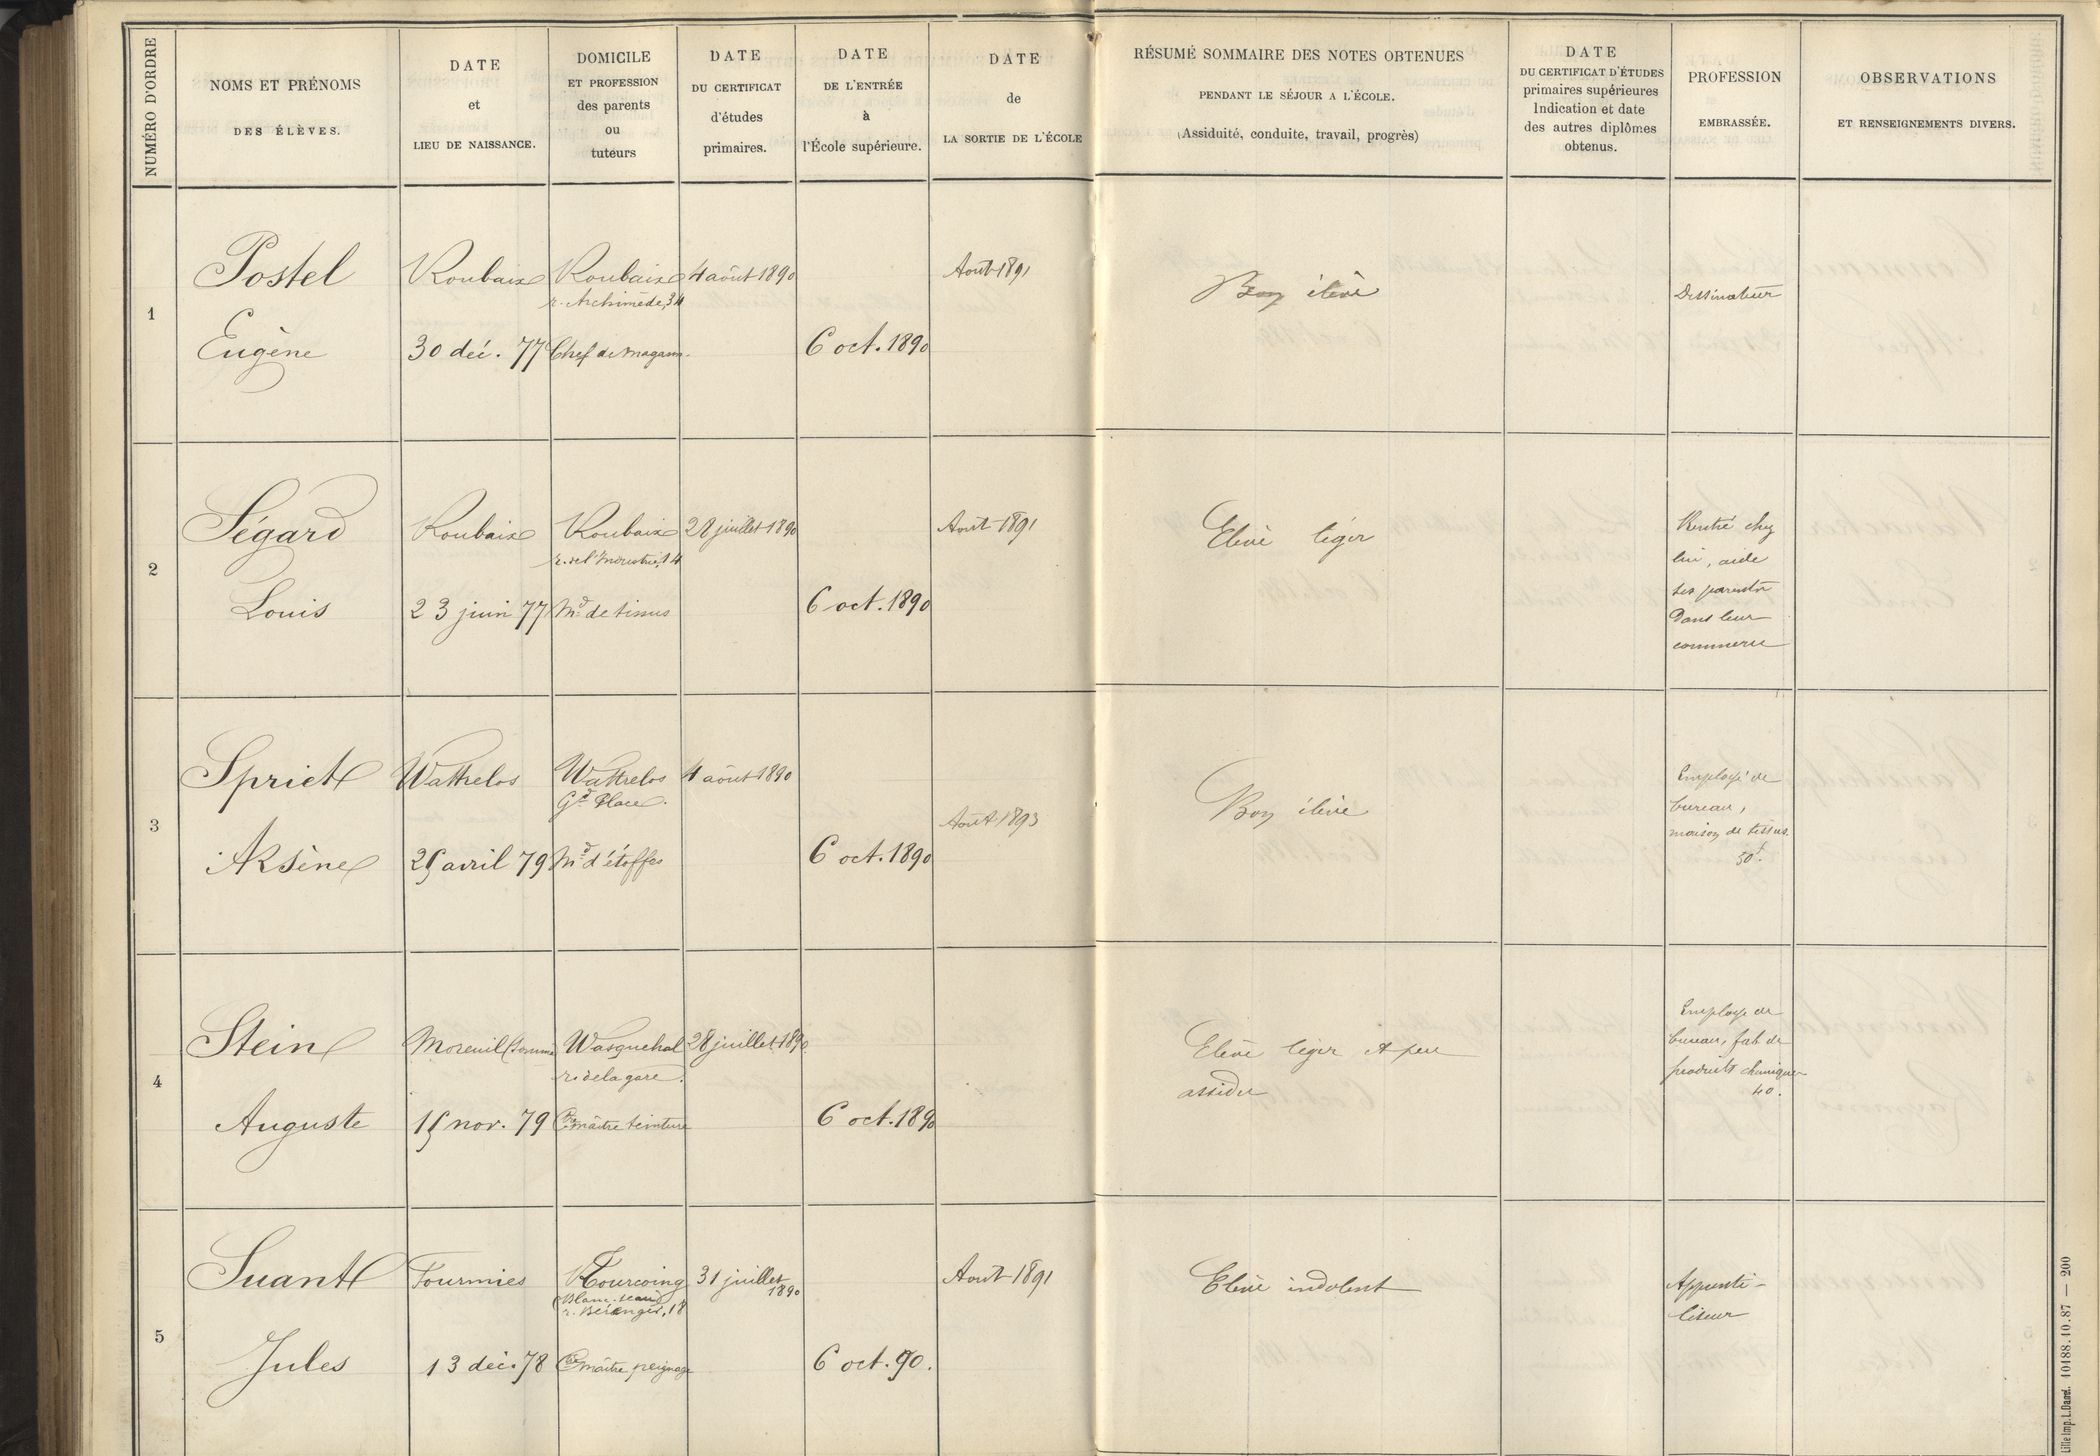 NUMÉRO D'ORDRE
NOMS ET PRÉNOMS
DES ÉLÈVES.
DATE
et
LIEU DE NAISSANCE.
DOMICILE
ET PROFESSION
des parents
ou
tuteurs
DATE
DU CERTIFICAT
d'études
primaires.
DATE
DE L'ENTRÉE
à
l'École supérieure.
DATE
de
LA SORTIE DE L'ÉCOLE
RÉSUMÉ SOMMAIRE DES NOTES OBTENUES
PENDANT LE SÉJOUR A L'ÉCOLE.
(Assiduité, conduite, travail, progrès)
DATE
DU CERTIFICAT D'ÉTUDES
primaires supérieures
Indication et date
des autres diplômes
obtenus.
PROFESSION
EMBRASSÉE.
OBSERVATIONS
ET RENSEIGNEMENTS DIVERS.
1
Postel
Eugène
Roubaix
30 déc. 77
Roubaix
r. Archimède, 34
Chef de magasin.
4 août 1890
6 oct. 1890
Août 1891
Bon élève
Dessinateur
2
Ségard
Louis
Roubaix
23 juin 77
Roubaix
r. de l'Industrie, 14
Md de tissus
28 juillet 1890
6 oct. 1890
Août 1891
Elève léger
Rentré chez
lui, aide
ses parents
dans leur
commerce
3
Spriet
Arsène
Wattrelos
25 avril 79
Wattrelos
Gde Place.
Md d'étoffes
4 août 1890
6 oct. 1890
Août 1893
Bon élève
Employé de
bureau,
maison de tissus.
50f.
4
Stein
Auguste
Moreuil (Somme
15 nov. 79
Wasquehal
r. de la gare.
Cre maître teinture
28 juillet 1890
6 oct. 1890
Elève léger et peu
assidu
Employé de
bureau, fab de
produits chimiques
40.
5
Suant
Jules
Fourmies
13 déc. 78
Tourcoing
(Blanc-seau)
r. Béranger, 18
Cre maître peignage
31 juillet
1890
6 oct. 90.
Août 1891
Elève indolent
Apprenti-
liseur
Lille Imp. L. Danel. 10188.10.87 — 200